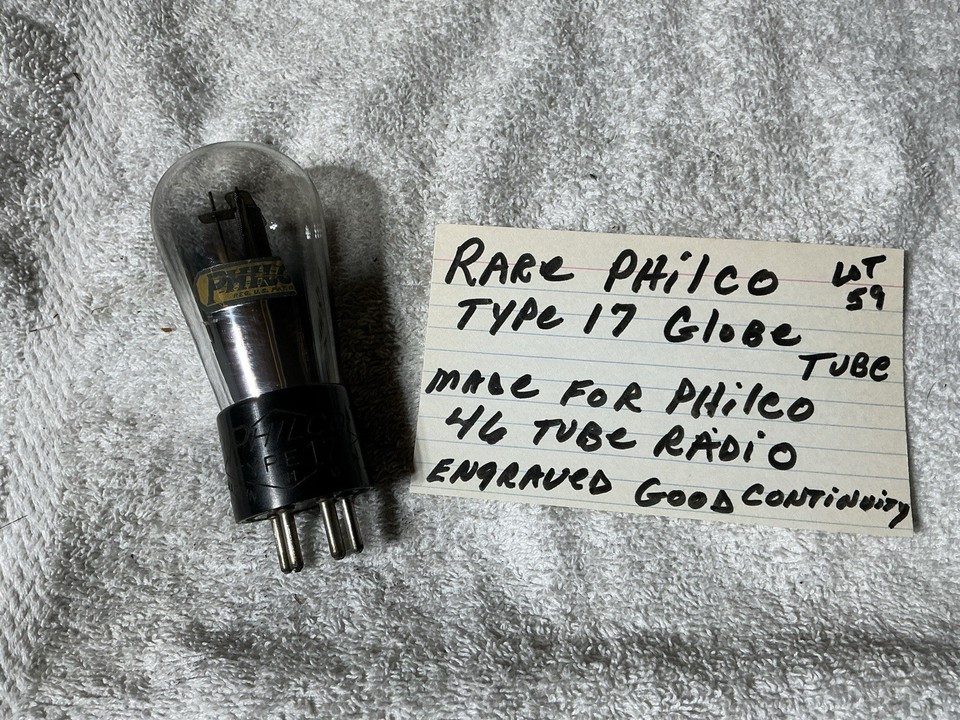 RARe PHilco LOT
59
TYPe 17 GloBe
TUBe
MADe FOR PHilco
46 TUBe RADiO
ENGRAVeD GOOD CONTiNUiTy
PHIL
PHILCO
TYPE 1